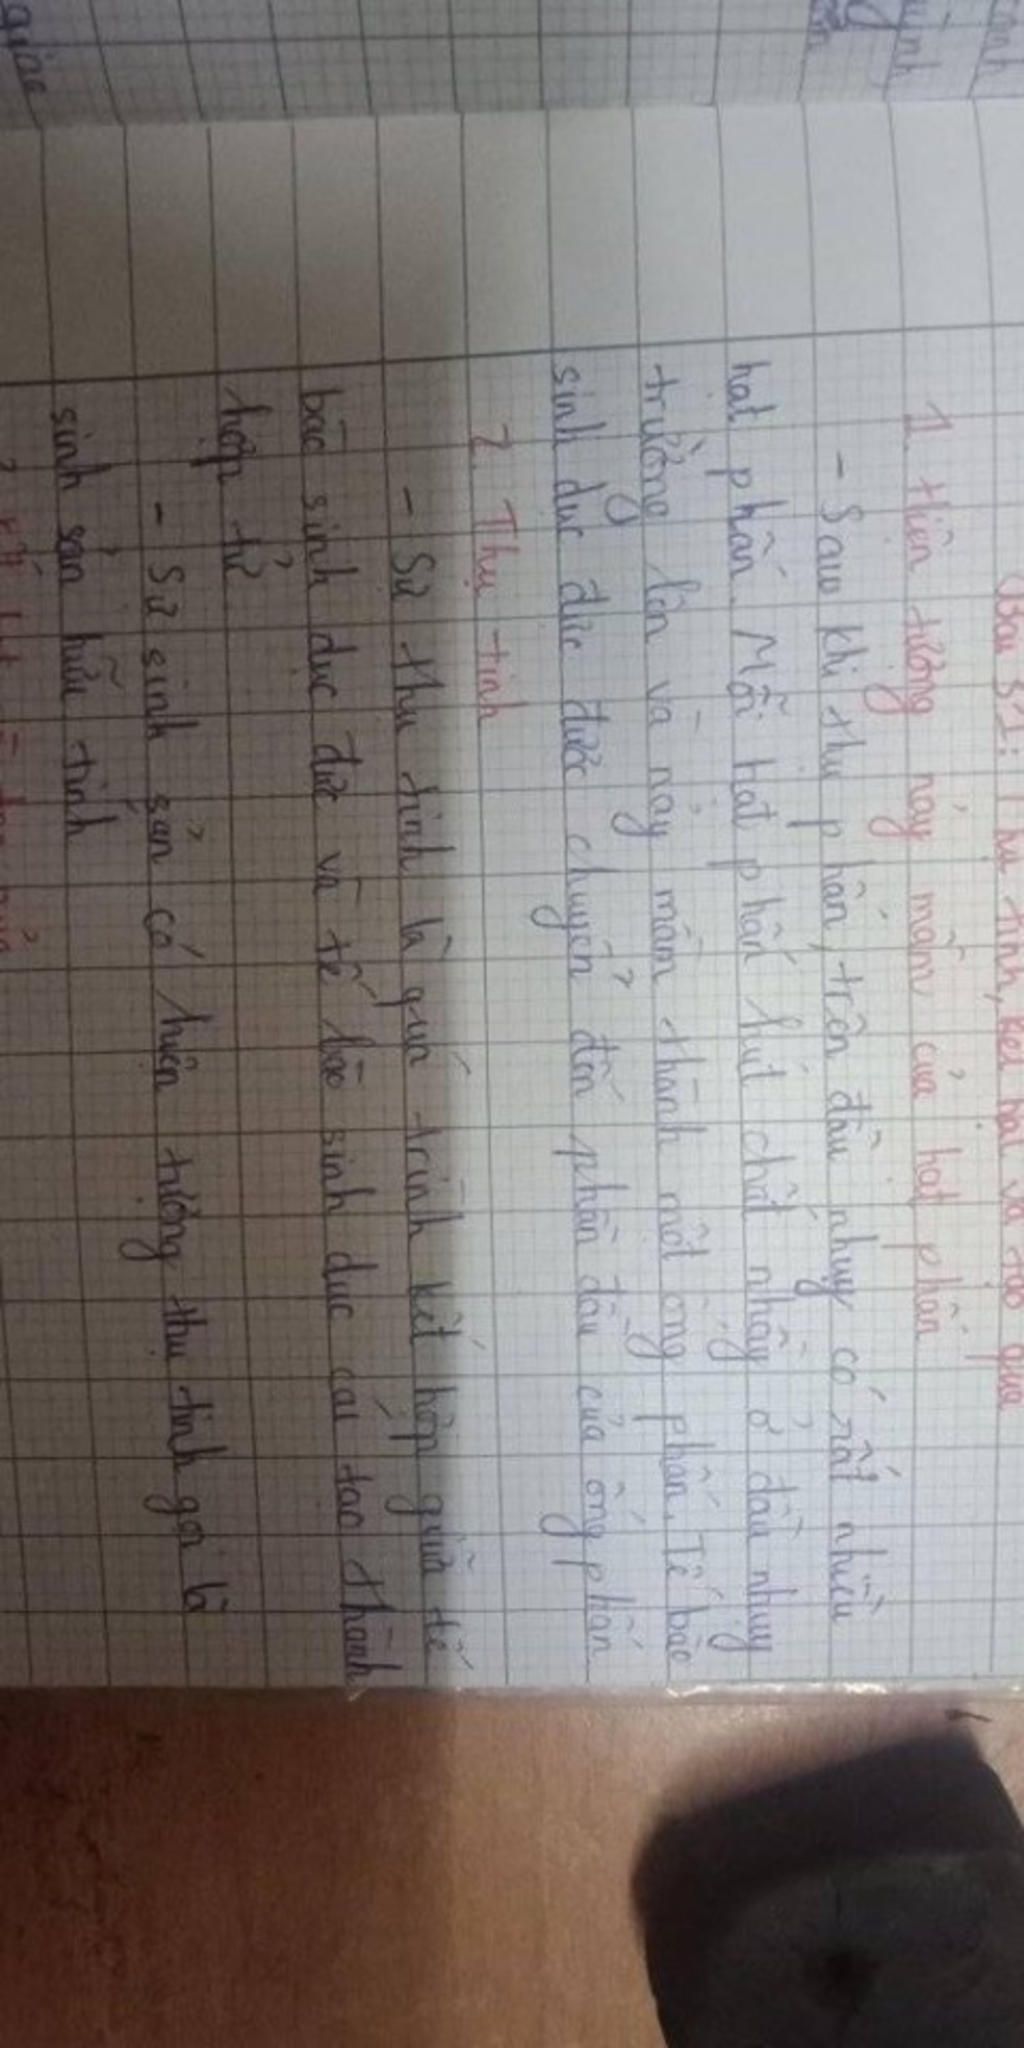 Bài 31: Thụ tinh, kết hạt và tạo quả
1. Hiện tượng nảy mầm của hạt phấn
- Sau khi thụ phấn, trên đầu nhụy có rất nhiều
hạt phấn. Mỗi hạt phấn hút chất nhầy ở đầu nhụy
trường lên và nảy mầm thành một ống phấn. Tế bào
sinh dục đực được chuyển đến phần đầu của ống phấn
2. Thụ tinh
- Sự thụ tinh là quá trình kết hợp giữa tế
bào sinh dục đực và tế bào sinh dục cái tạo thành
hợp tử
- Sự sinh sản có hiện tượng thụ tinh gọi là
sinh sản hữu tính